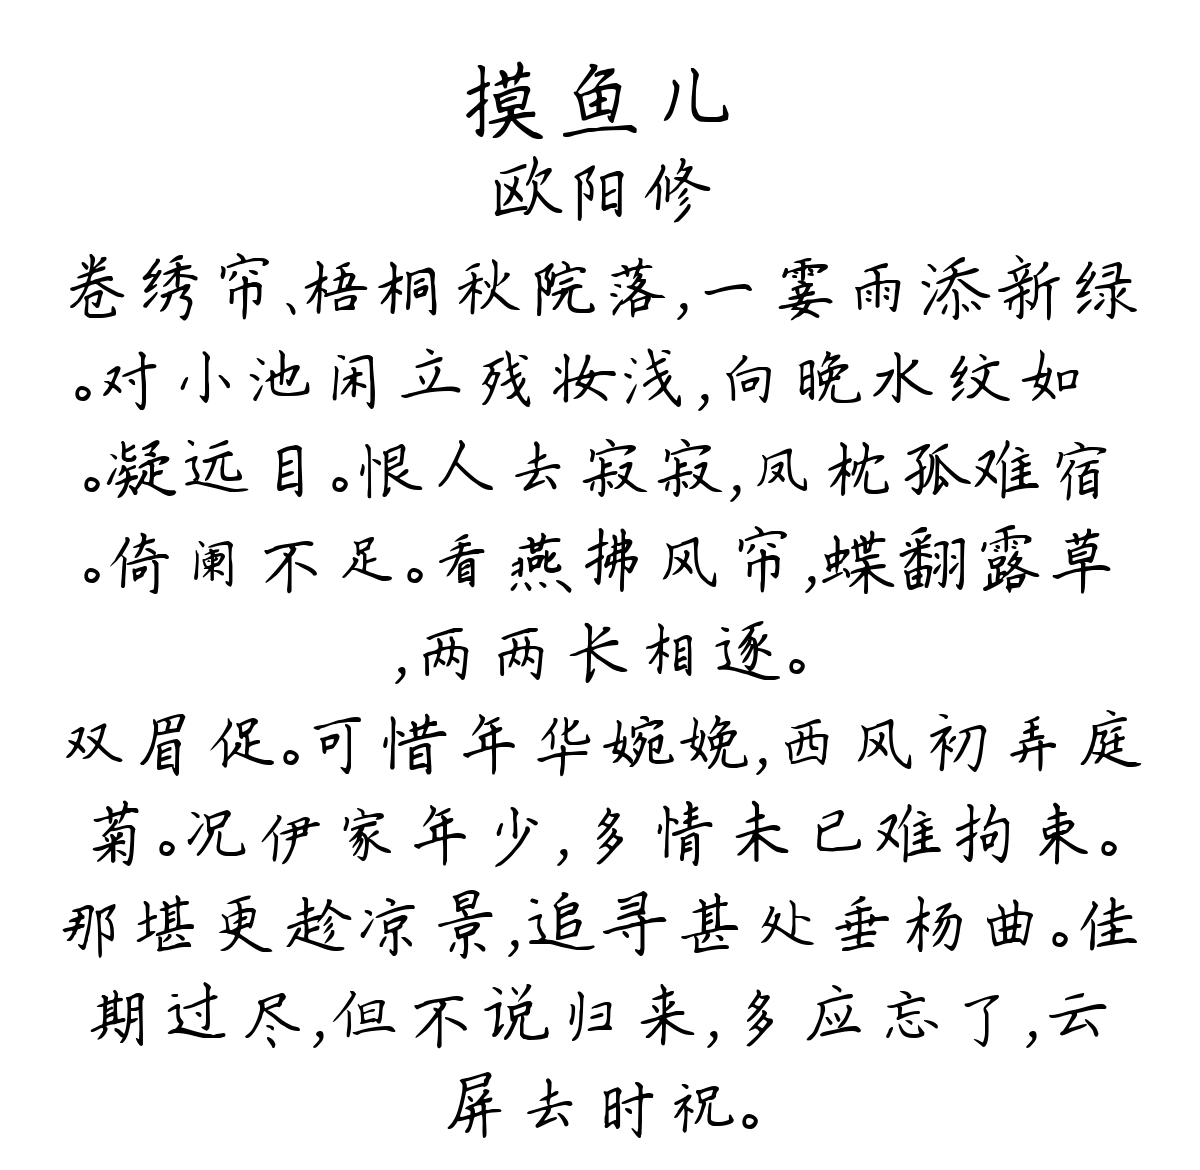 摸鱼儿
欧阳修
卷绣帘、梧桐秋院落,一霎雨添新绿
。对小池闲立残妆浅,向晚水纹如
。凝远目。恨人去寂寂,凤枕孤难宿
。倚阑不足。看燕拂风帘,蝶翻露草
,两两长相逐。
双眉促。可惜年华婉娩,西风初弄庭
菊。况伊家年少,多情未已难拘束。
那堪更趁凉景,追寻甚处垂杨曲。佳
期过尽,但不说归来,多应忘了,云
屏去时祝。